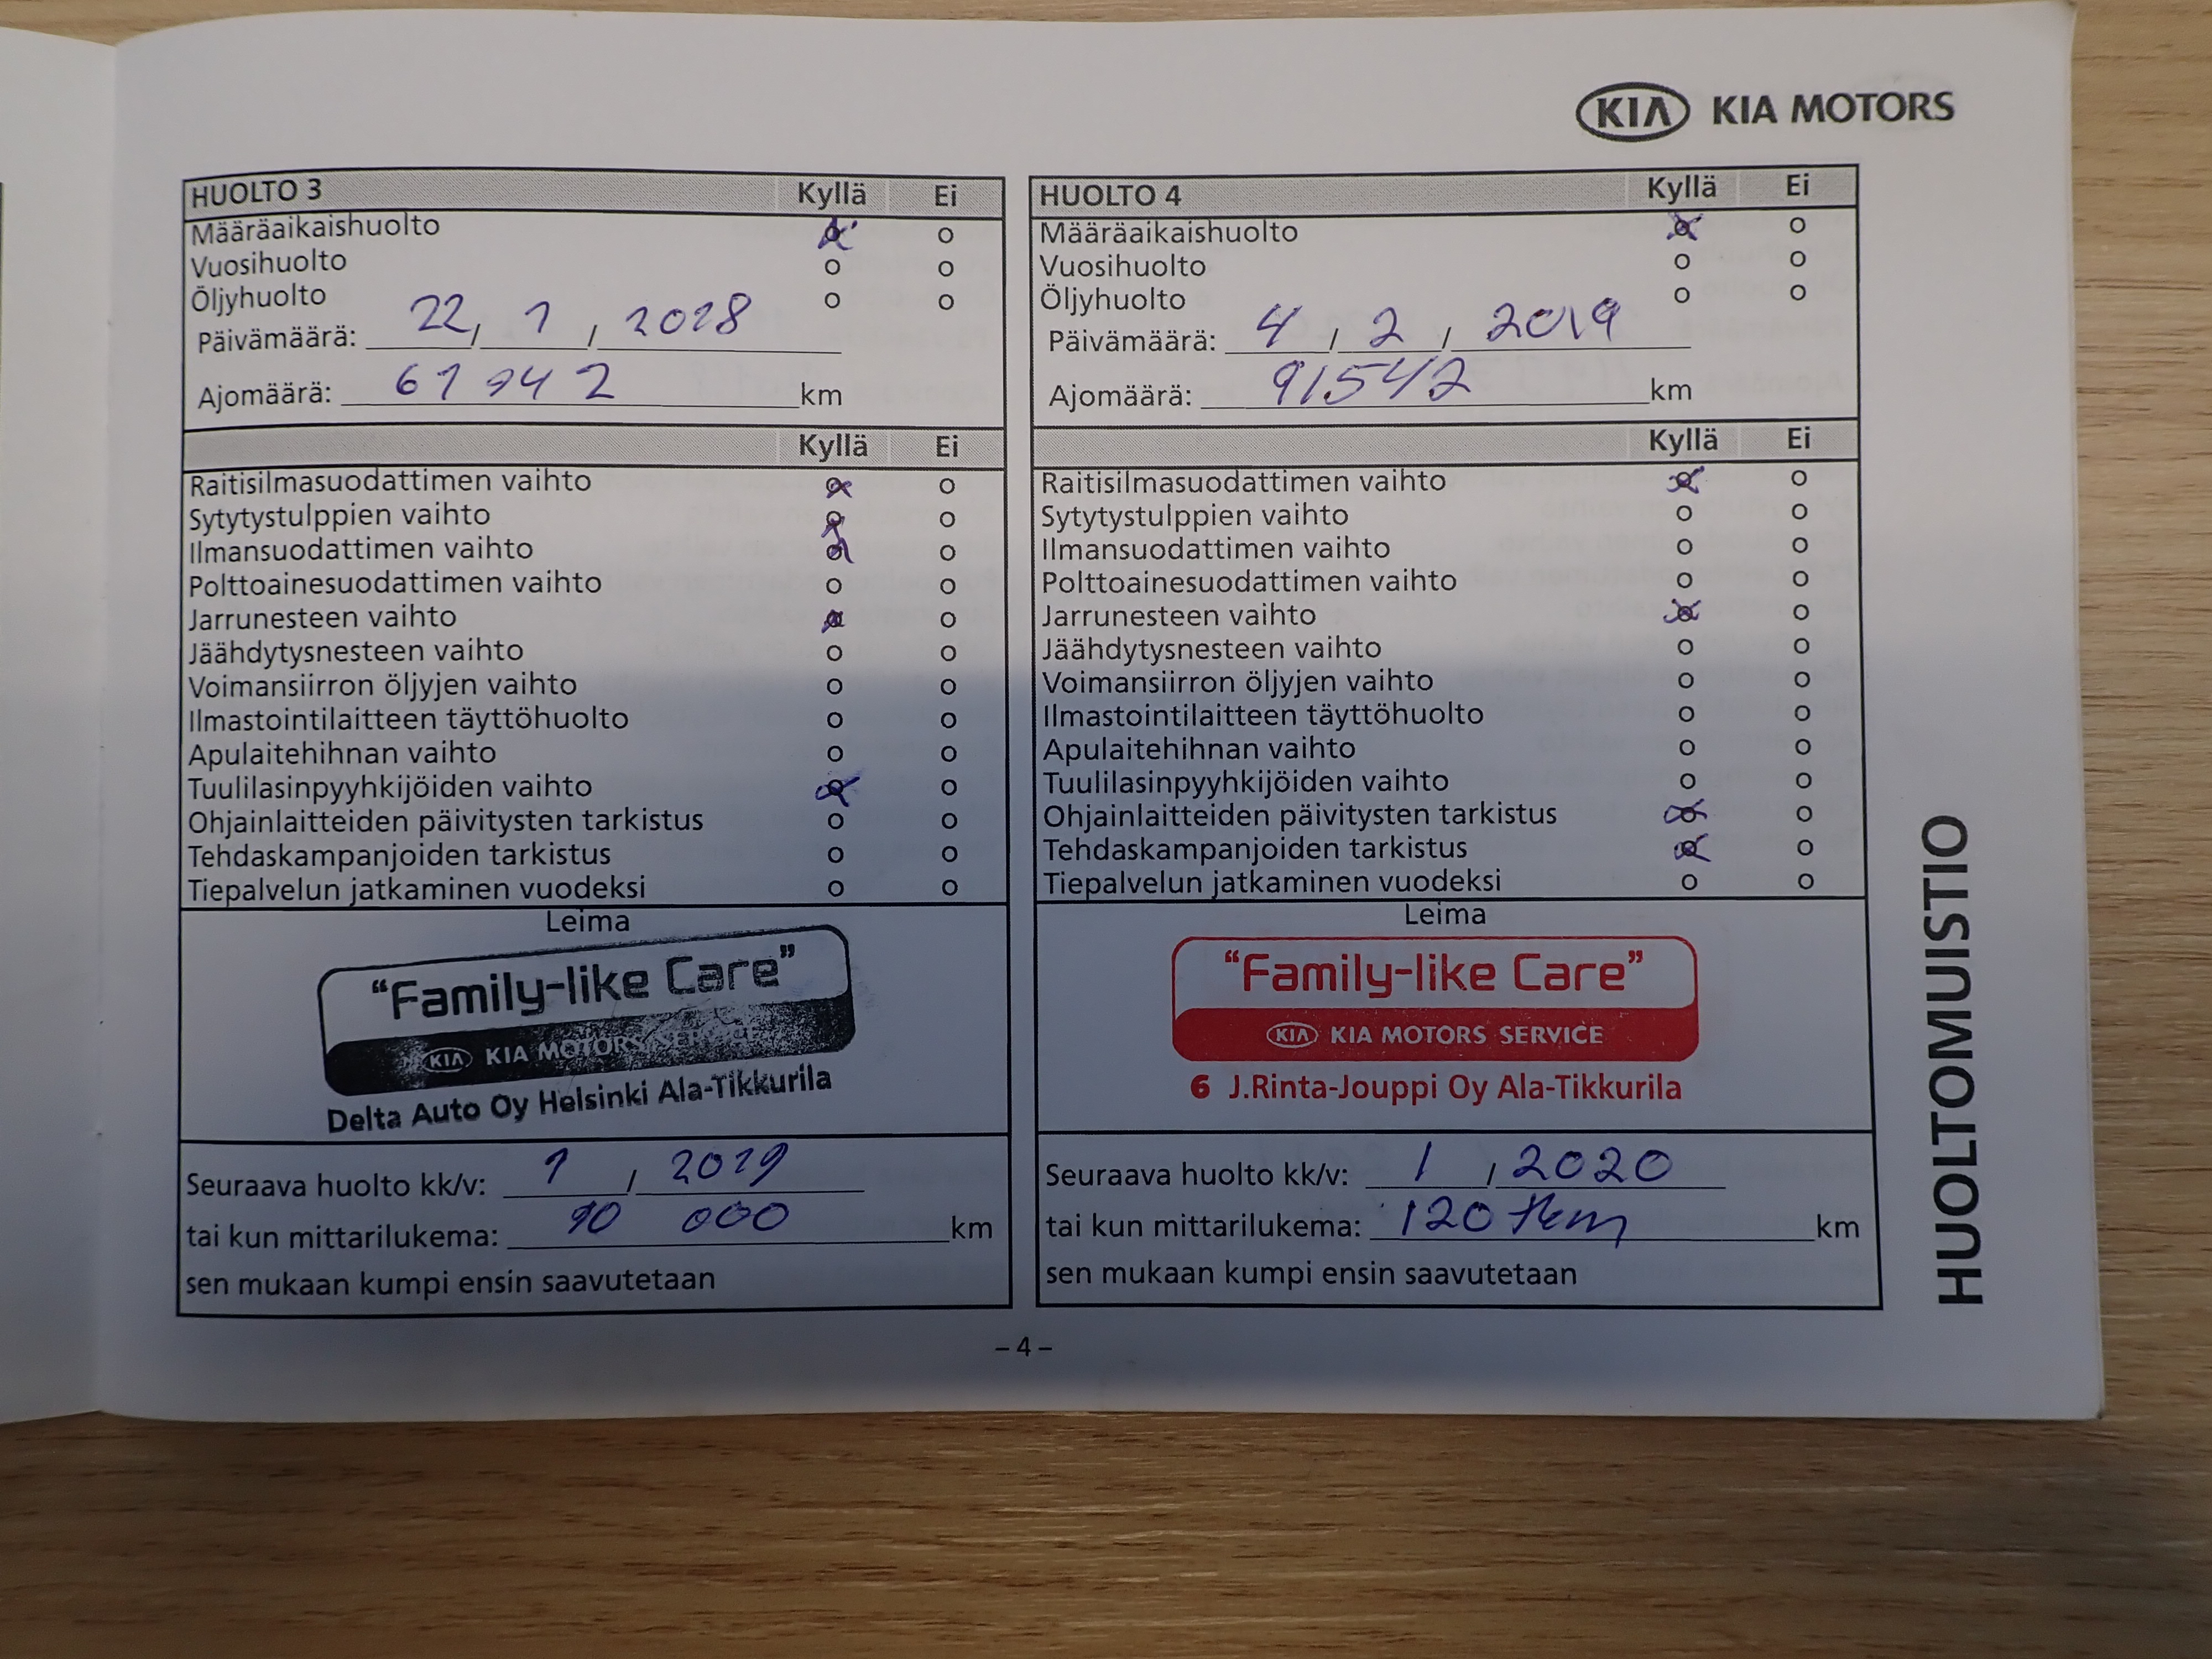 KIA KIA MOTORS
HUOLTO 3 Kyllä Ei
Määräaikaishuolto o o
Vuosihuolto o o
Öljyhuolto o o
Päivämäärä: 22, / 1 / 2018
Ajomäärä: km
Kyllä Ei
Raitisilmasuodattimen vaihto o o
Sytytystulppien vaihto o o
Ilmansuodattimen vaihto o o
Polttoainesuodattimen vaihto o o
Jarrunesteen vaihto o o
Jäähdytysnesteen vaihto o o
Voimansiirron öljyjen vaihto o o
Ilmastointilaitteen täyttöhuolto o o
Apulaitehihnan vaihto o o
Tuulilasinpyyhkijöiden vaihto o o
Ohjainlaitteiden päivitysten tarkistus o o
Tehdaskampanjoiden tarkistus o o
Tiepalvelun jatkaminen vuodeksi o o
Leima
“Family-like Care”
KIA KIA MOTORS SERVICE
Delta Auto Oy Helsinki Ala-Tikkurila
Seuraava huolto kk/v: 1 / 2019
tai kun mittarilukema: 90 000 km
sen mukaan kumpi ensin saavutetaan
HUOLTO 4 Kyllä Ei
Määräaikaishuolto o o
Vuosihuolto o o
Öljyhuolto o o
Päivämäärä: 4 / 2 / 2019
Ajomäärä: 91542 km
Kyllä Ei
Raitisilmasuodattimen vaihto o o
Sytytystulppien vaihto o o
Ilmansuodattimen vaihto o o
Polttoainesuodattimen vaihto o o
Jarrunesteen vaihto o o
Jäähdytysnesteen vaihto o o
Voimansiirron öljyjen vaihto o o
Ilmastointilaitteen täyttöhuolto o o
Apulaitehihnan vaihto o o
Tuulilasinpyyhkijöiden vaihto o o
Ohjainlaitteiden päivitysten tarkistus o o
Tehdaskampanjoiden tarkistus o o
Tiepalvelun jatkaminen vuodeksi o o
Leima
“Family-like Care”
KIA KIA MOTORS SERVICE
6 J.Rinta-Jouppi Oy Ala-Tikkurila
Seuraava huolto kk/v: 1 / 2020
tai kun mittarilukema: 120 tkm km
sen mukaan kumpi ensin saavutetaan
HUOLTOMUISTIO
– 4 –